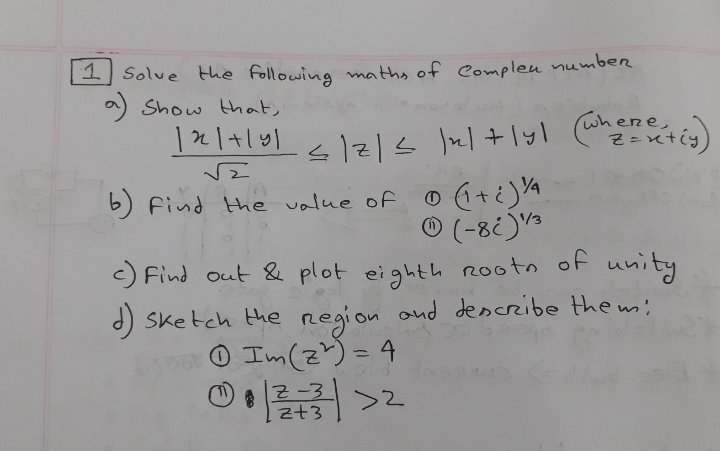 1 Solve the following maths of Complex number
a) Show that,
|x|+|y| / √2 ≤ |z| ≤ |x| + |y| (where, z = x+iy)
b) Find the value of (i) (1+i)^1/4
(ii) (-8i)^1/3
c) Find out & plot eighth roots of unity
d) Sketch the region and describe them:
(i) Im(z²) = 4
(ii) |z-3 / z+3| > 2